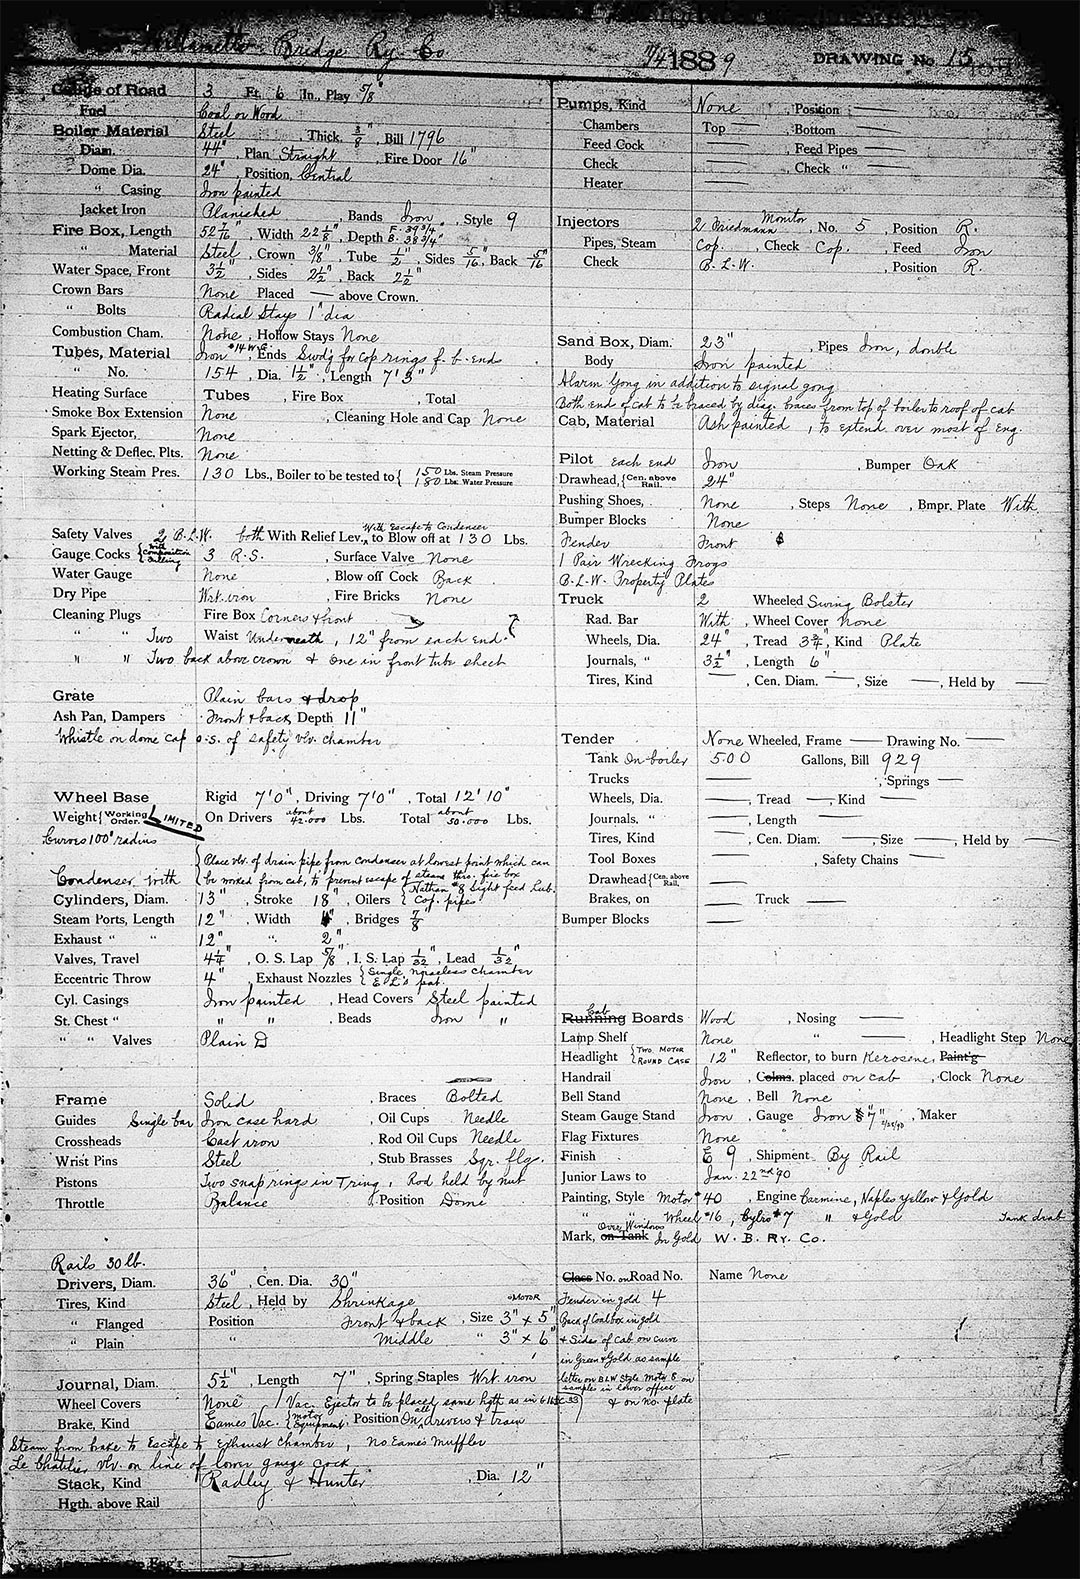 Willamette Bridge Ry. Co
1889 DRAWING No. 15
Gauge of Road 3 Ft. 6 In., Play 5/8"
Fuel Coal or Wood
Boiler Material Steel , Thick. 3/8", Bill 1796
Diam. 44" , Plan Straight , Fire Door 16"
Dome Dia. 24" , Position, Central
" Casing Iron painted
Jacket Iron Planished , Bands Iron , Style 9
Fire Box, Length 52 7/16" , Width 22 1/8" , Depth F. 39 3/4" B. 38 3/4"
" Material Steel , Crown 3/8" , Tube 1/2" , Sides 5/16", Back 5/16"
Water Space, Front 3 1/2" , Sides 2 1/2" , Back 2 1/2"
Crown Bars None Placed — above Crown.
" Bolts Radial Stays 1" dia
Combustion Cham. None , Hollow Stays None
Tubes, Material Iron #14 W.G. Ends Swd'g for Cop rings f. b. end
" No. 154 , Dia. 1 1/2" , Length 7' 3"
Heating Surface Tubes , Fire Box , Total
Smoke Box Extension None , Cleaning Hole and Cap None
Spark Ejector, None
Netting & Deflec. Plts. None
Working Steam Pres. 130 Lbs., Boiler to be tested to { 150 Lbs. Steam Pressure
180 Lbs. Water Pressure
With Escape to Condenser
Safety Valves 2 B.L.W. both With Relief Lev., to Blow off at 130 Lbs.
Gauge Cocks { With Composition 3 R.S. , Surface Valve None
Water Gauge None , Blow off Cock Back
Dry Pipe Wrt. iron , Fire Bricks None
Cleaning Plugs Fire Box Corners & front
" " Two Waist Underneath , 12" from each end.
" " Two back above crown & One in front tube sheet
Grate Plain bars & drop
Ash Pan, Dampers Front & back Depth 11"
Whistle on dome Cap o.s. of safety vlv. chamber
Wheel Base Rigid 7'0", Driving 7'0" , Total 12' 10"
Weight { Working Order. LIMITED On Drivers about 42.000 Lbs. Total about 50.000 Lbs.
Curves 100' radius
{ Place vlv. of drain pipe from condenser at lowest point which can
Condenser With be worked from cab, to prevent escape of steam thro. fire box
{ Nathan #8 Sight feed Lub.
Cylinders, Diam. 13" , Stroke 18" , Oilers { Cop. pipes
Steam Ports, Length 12" , Width 1" , Bridges 7/8"
Exhaust " " 12" " 2"
Valves, Travel 4 1/4" , O. S. Lap 5/8", I. S. Lap 1/32" , Lead 1/32"
Eccentric Throw 4" , Exhaust Nozzles { Single noiseless chamber
E L's pat.
Cyl. Casings Iron painted , Head Covers Steel painted
St. Chest " " " , Beads Iron "
" " Valves Plain D
Frame Solid , Braces Bolted
Guides Single bar Iron case hard , Oil Cups Needle
Crossheads Cast iron , Rod Oil Cups Needle
Wrist Pins Steel , Stub Brasses Sqr. flg.
Pistons Two snap rings in T ring , Rod held by nut
Throttle Balance , Position Dome
Rails 30 lb.
Drivers, Diam. 36" , Cen. Dia. 30"
Tires, Kind Steel , Held by Shrinkage
" Flanged Position Front & back , Size 3" x 5"
" Plain " Middle " 3" x 6"
Journal, Diam. 5 1/2" , Length 7" , Spring Staples Wrt iron
Wheel Covers None 1 Vac. Ejector to be placed same hgth as in
Brake, Kind Eames Vac. { motor Equipment. Position On all drivers & train
Steam from brake to Escape to Exhaust chamber, No Eames Muffler
Le Chatelier vlv. on line of lower gauge cock
Stack, Kind Radley & Hunter , Dia. 12"
Hgth. above Rail
Pumps, Kind None , Position —
Chambers Top — , Bottom —
Feed Cock — , Feed Pipes —
Check — , Check " —
Heater —
Injectors 2 Friedmann Monitor , No. 5 , Position R.
Pipes, Steam Cop. , Check Cop. , Feed Iron
Check B.L.W. , Position R.
Sand Box, Diam. 23" , Pipes Iron, double
Body Iron painted
Alarm Gong in addition to signal gong
Both end of cab to be braced by diag. braces from top of boiler to roof of cab
Cab, Material Ash painted , to extend over most of Eng.
Pilot each end Iron , Bumper Oak
Drawhead, { Cen. above Rail. 24"
Pushing Shoes, None , Steps None , Bmpr. Plate With
Bumper Blocks None
Fender Front
1 Pair Wrecking Frogs
B.L.W. Property Plates
Truck 2 Wheeled Swing Bolster
Rad. Bar With , Wheel Cover None
Wheels, Dia. 24" , Tread 3 3/4", Kind Plate
Journals, " 3 1/2" , Length 6"
Tires, Kind — , Cen. Diam. — , Size — , Held by —
Tender None Wheeled, Frame — Drawing No. —
Tank On boiler 500 Gallons, Bill 929
Trucks — , Springs —
Wheels, Dia. — , Tread — , Kind —
Journals. " — , Length —
Tires, Kind — , Cen. Diam. — , Size — , Held by —
Tool Boxes — , Safety Chains —
Drawhead { Cen. above Rail, —
Brakes, on — Truck —
Bumper Blocks —
Cab
Running Boards Wood , Nosing —
Lamp Shelf None " — , Headlight Step None
Headlight { TWO MOTOR ROUND CASE 12" Reflector, to burn Kerosene, Paint'g
Handrail Iron , Colms. placed on cab , Clock None
Bell Stand None , Bell None
Steam Gauge Stand Iron , Gauge Iron 7" , Maker
Flag Fixtures None
Finish E 9 , Shipment By Rail
Junior Laws to Jan. 22nd 90
Painting, Style Motor #40 , Engine Carmine, Naples Yellow & Gold
" " Wheel #16 , Cylrs #7 " & Gold Tank drab
Over Windows
Mark, on Tank In Gold W. B. RY. CO.
Class No. on Road No. Name None
Fender in gold 4
MOTOR
Back of Coal box in gold
& Sides of Cab on curve
in Green & Gold as sample
letter on BLW Style Motr & on
sample in lower office
& on no. plate